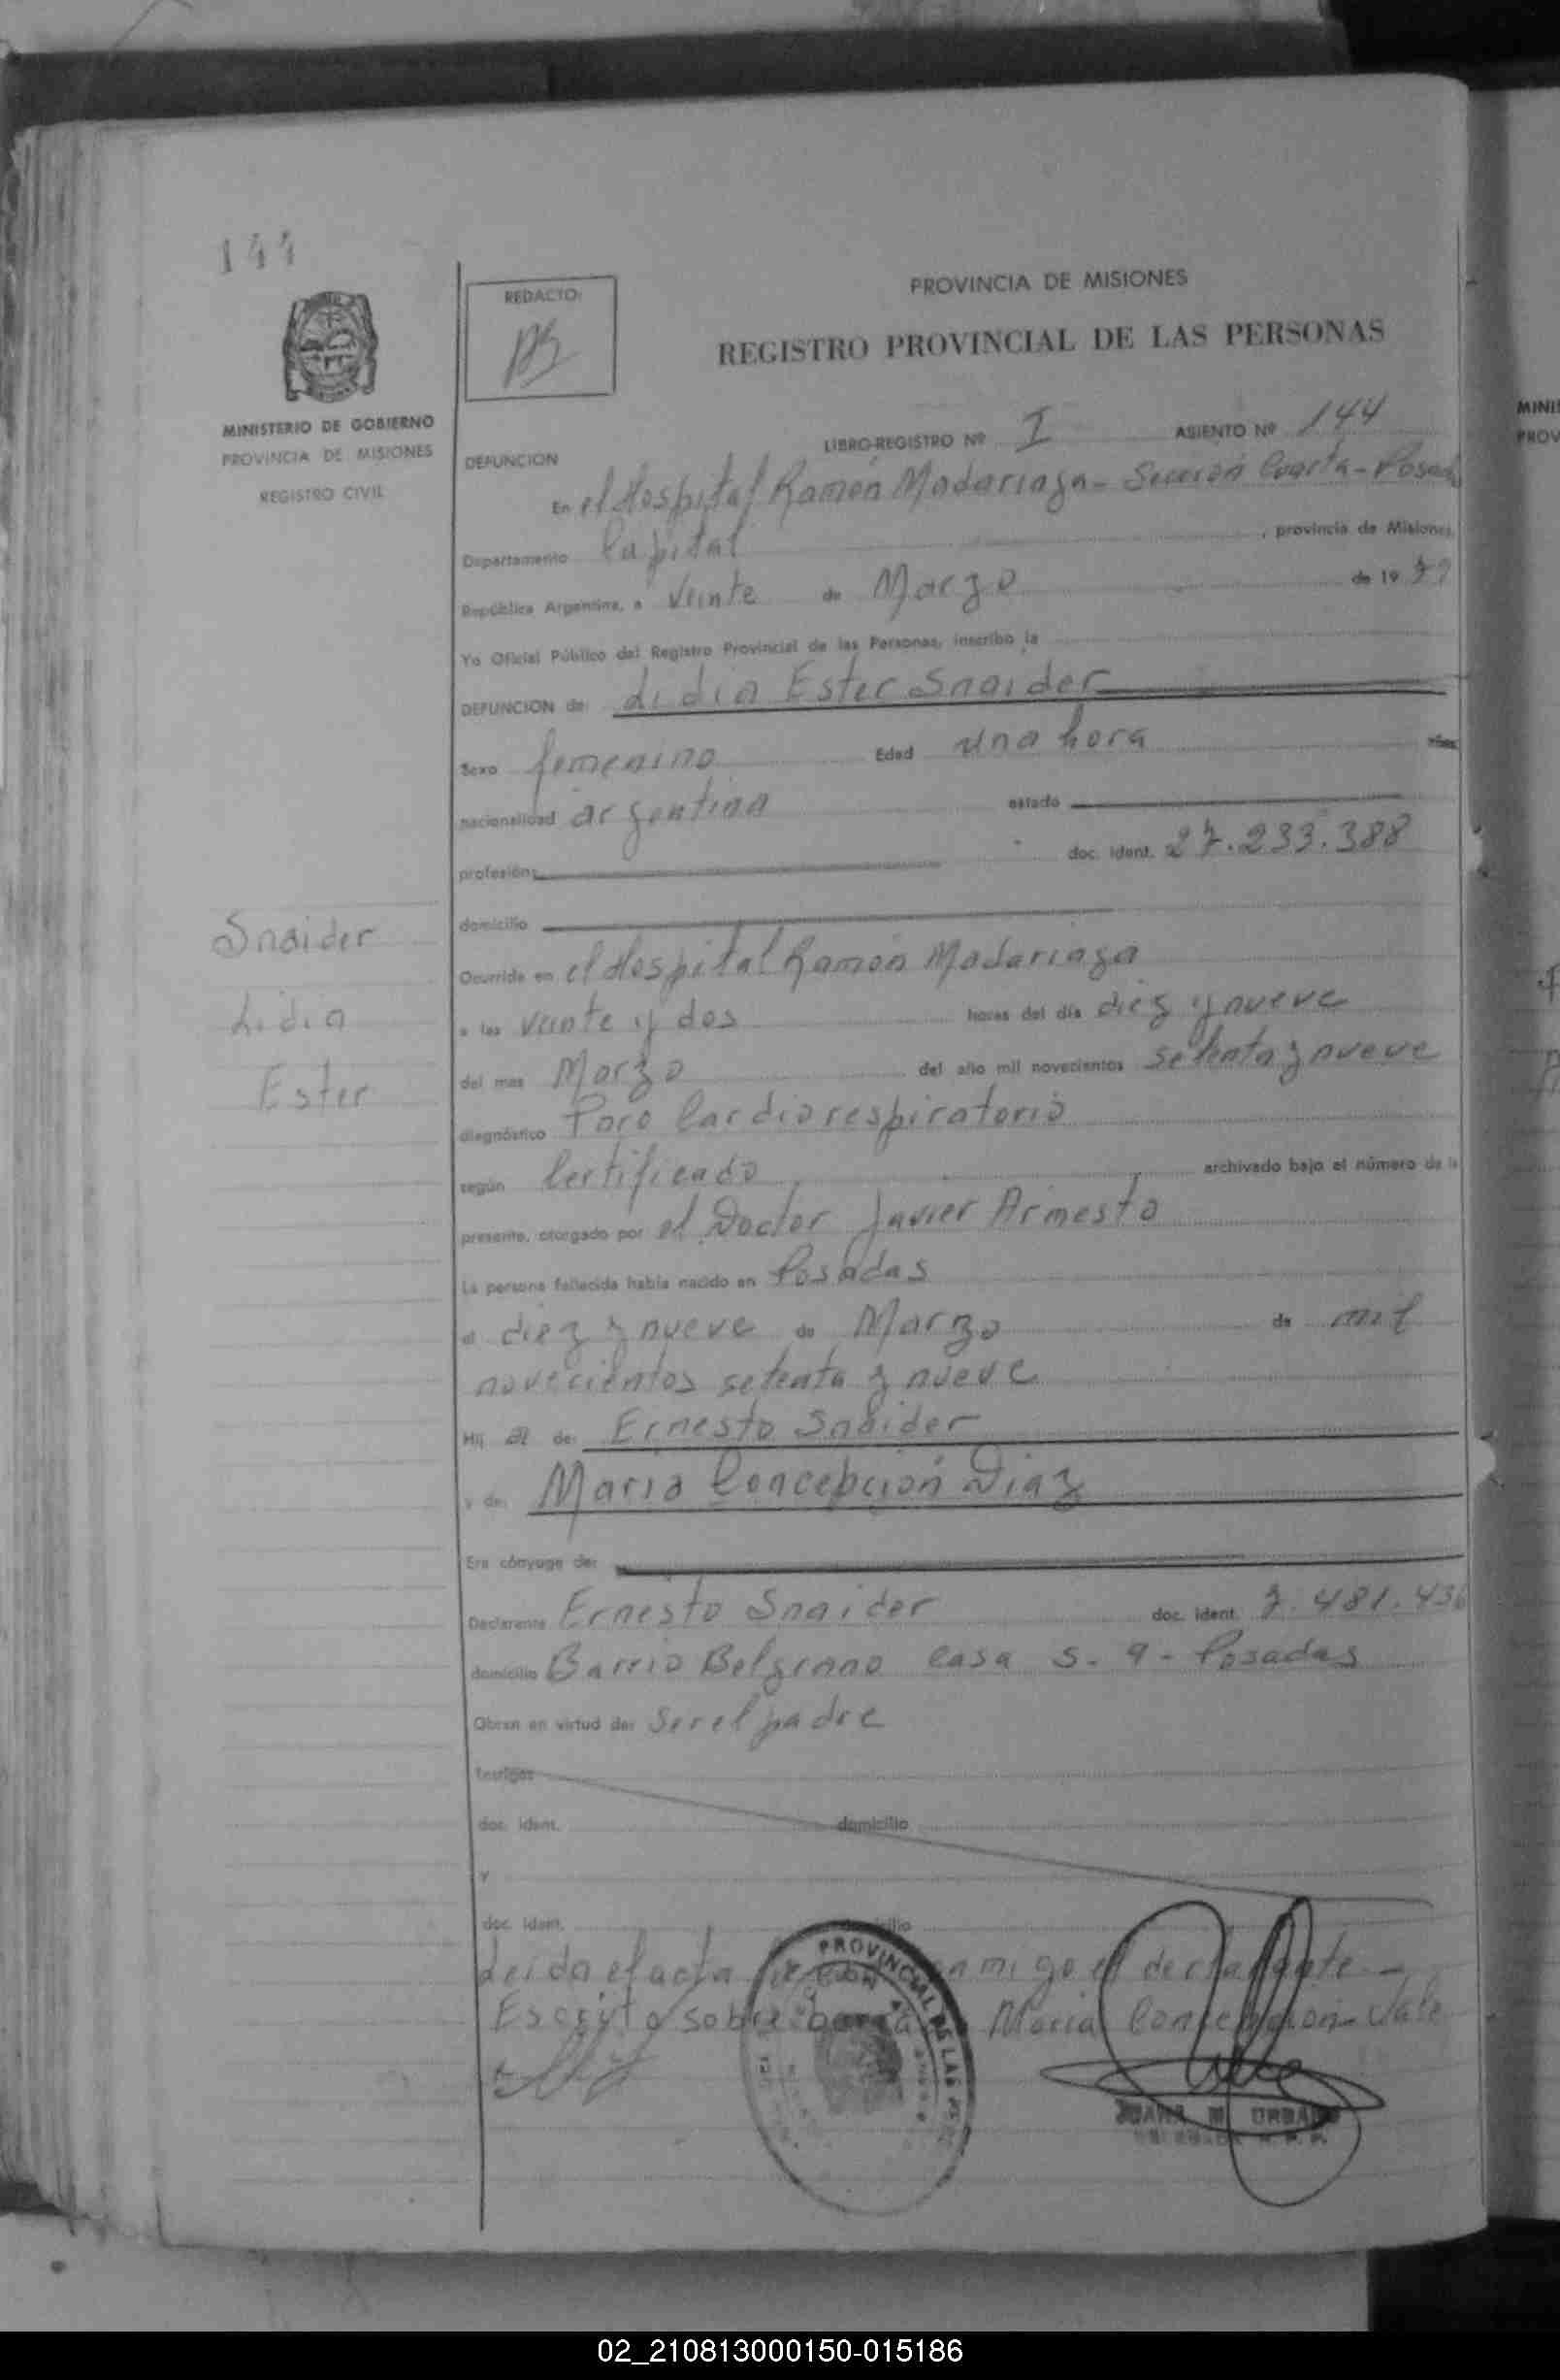 144
REDACTO:
PROVINCIA DE MISIONES
REGISTRO PROVINCIAL DE LAS PERSONAS
MINISTERIO DE GOBIERNO
PROVINCIA DE MISIONES
REGISTRO CIVIL
LIBRO-REGISTRO Nº I ASIENTO Nº 144
DEFUNCION
En el Hospital Ramón Madariaga - Sección Cuarta - Posadas
Departamento Capital, provincia de Misiones,
República Argentina, a Veinte de Marzo de 1979
Yo Oficial Público del Registro Provincial de las Personas, inscribo la
DEFUNCION de: Lidia Ester Snaider
Sexo femenino Edad una hora años
nacionalidad argentina estado
profesión: doc. ident. 27.233.388
domicilio
Snaider
Lidia
Ester
Ocurrida en el Hospital Ramón Madariaga
a las veinte y dos horas del día diez y nueve
del mes Marzo del año mil novecientos setenta y nueve
diagnóstico Paro Cardiorespiratorio
según Certificado archivado bajo el número de la
presente, otorgado por el Doctor Javier Armesto
La persona fallecida había nacido en Posadas
el diez y nueve de Marzo de mil
novecientos setenta y nueve
Hij a de: Ernesto Snaider
y de: Maria Concepción Diaz
Era cónyuge de:
Declarante Ernesto Snaider doc. ident. 7.481.436
domicilio Barrio Belgrano casa S. 9 - Posadas
Obran en virtud de: Ser el padre
Testigos
doc. ident. domicilio
Y
doc. ident. domicilio
Leida el acta conmigo el declarante -
Escrito sobre Maria Concepción - Vale
PROVINCIAL DE LAS
JUANA M. URBAN
02_210813000150-015186